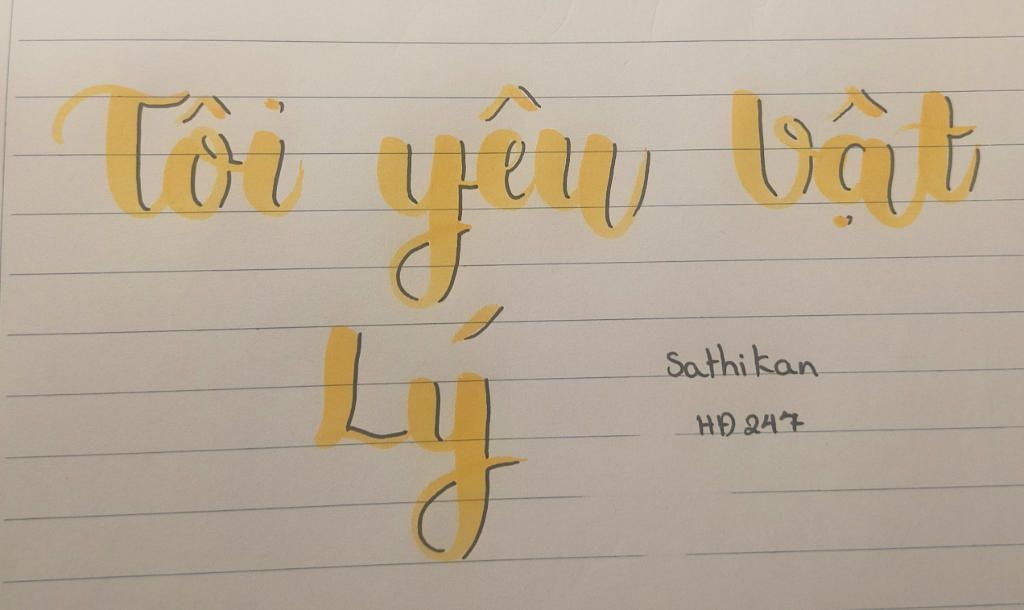 Tôi yêu Vật
Lý
Sathikan
HĐ247